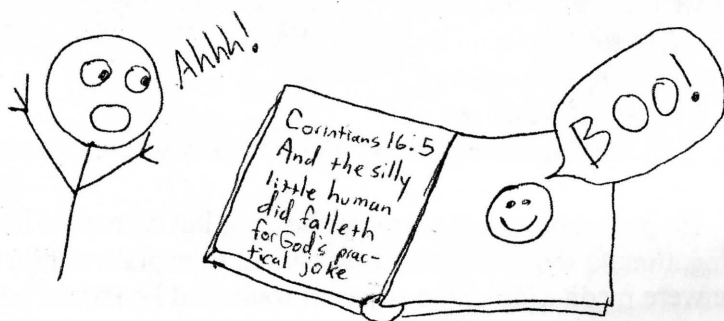 Ahhh!
Corintians 16:5
And the silly
little human
did falleth
for God's prac-
tical joke
BOO!